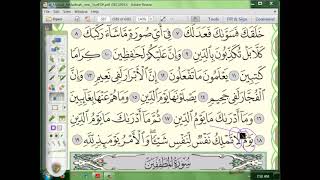 Adobe Reader
Tools Fill & Sign Comment
خَلَقَكَ فَسَوَّىٰكَ فَعَدَلَكَ ٧ فِىٓ أَىِّ صُورَةٍ مَّا شَآءَ رَكَّبَكَ ٨
كَلَّا بَلْ تُكَذِّبُونَ بِٱلدِّينِ ٩ وَإِنَّ عَلَيْكُمْ لَحَـٰفِظِينَ ١٠ كِرَامًا
كَـٰتِبِينَ ١١ يَعْلَمُونَ مَا تَفْعَلُونَ ١٢ إِنَّ ٱلْأَبْرَارَ لَفِى نَعِيمٍ ١٣ وَإِنَّ
ٱلْفُجَّارَ لَفِى جَحِيمٍ ١٤ يَصْلَوْنَهَا يَوْمَ ٱلدِّينِ ١٥ وَمَا هُمْ عَنْهَا بِغَآئِبِينَ
١٦ وَمَآ أَدْرَىٰكَ مَا يَوْمُ ٱلدِّينِ ١٧ ثُمَّ مَآ أَدْرَىٰكَ مَا يَوْمُ ٱلدِّينِ
١٨ يَوْمَ لَا تَمْلِكُ نَفْسٌ لِّنَفْسٍ شَيْـًٔا وَٱلْأَمْرُ يَوْمَئِذٍ لِّلَّهِ ١٩
سُورَةُ المُطَفِّفِينَ
7:58 AM